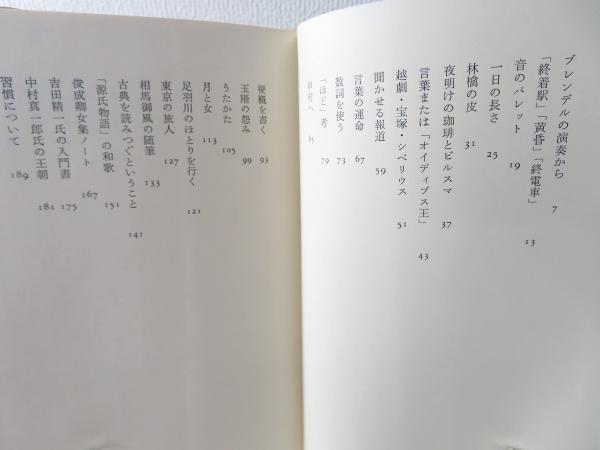 ブレンデルの演奏から 7
「終着駅」「黄昏」「終電車」 13
音のパレット 19
一日の長さ 25
林檎の皮 31
夜明けの珈琲とビルスマ 37
言葉または「オイディプス王」 43
越劇・宝塚・シベリウス 51
聞かせる報道 59
言葉の運命 67
数詞を使う 73
「ほど」考 79
甲村へ 85
梗概を書く 93
玉階の怨み 99
うたかた 105
月と女 113
足羽川のほとりを行く 121
東京の旅人 127
相馬御風の随筆 133
古典を読みつぐということ 141
「源氏物語」の和歌 151
俊成卿女集ノート 167
吉田精一氏の入門書 175
中村真一郎氏の王朝 181
習慣について 189